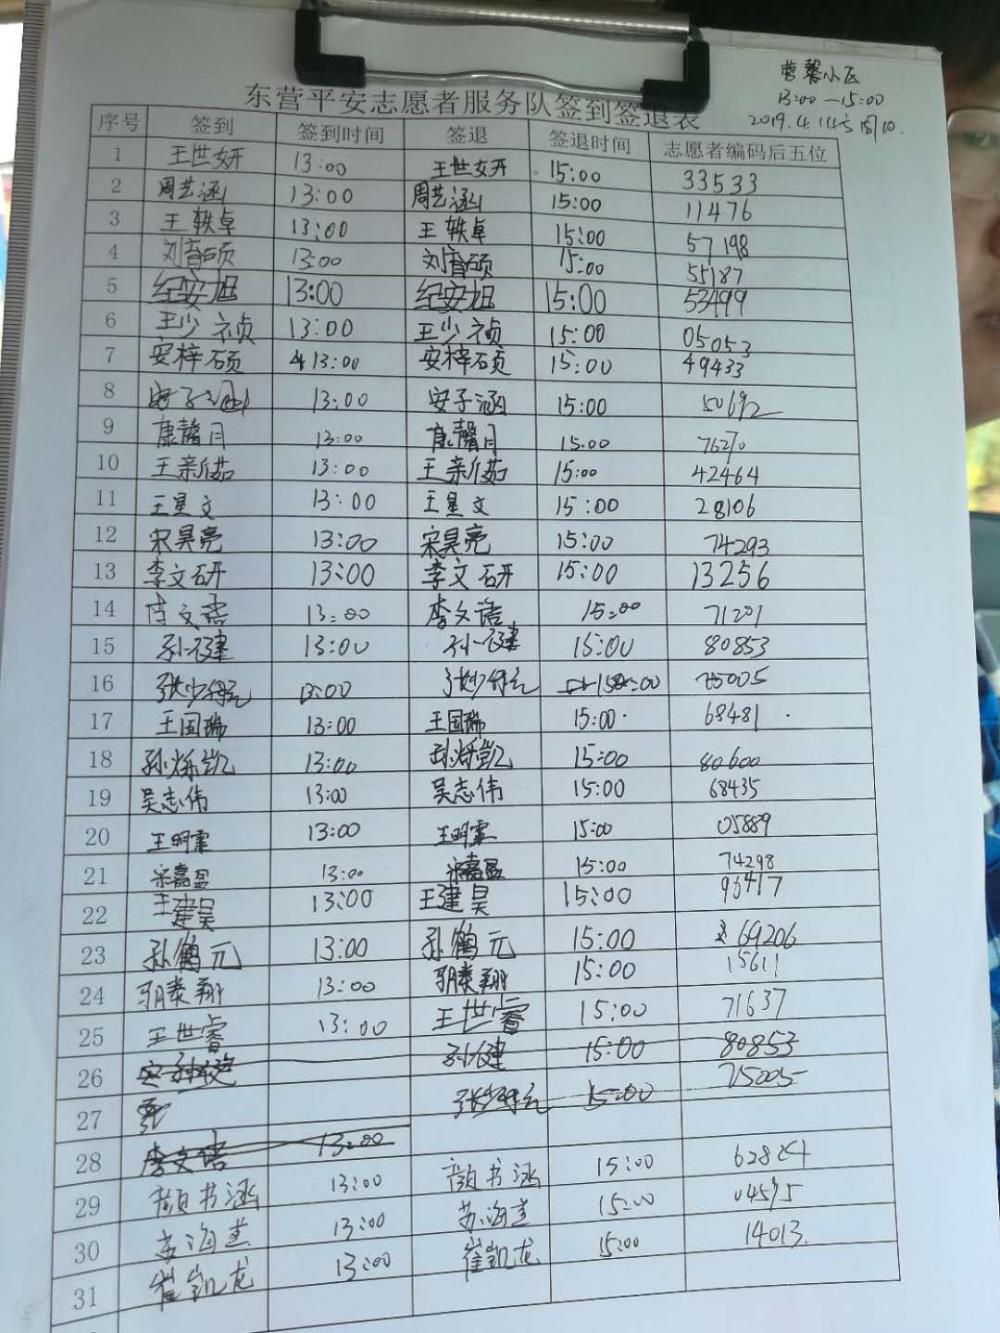 营馨小区
13:00—15:00
2019.4.14
东营平安志愿者服务队签到签退表
序号 签到 签到时间 签退 签退时间 志愿者编码后五位
1 王世妍 13:00 王世妍 15:00 33533
2 周艺涵 13:00 周艺涵 15:00 11476
3 王轶卓 13:00 王轶卓 15:00 57198
4 刘育硕 13:00 刘育硕 15:00 55187
5 纪安旭 13:00 纪安旭 15:00 53499
6 王少祯 13:00 王少祯 15:00 05053
7 安梓硕 13:00 安梓硕 15:00 49433
8 安子涵 13:00 安子涵 15:00 50692
9 康馨月 13:00 康馨月 15:00 76270
10 王新茹 13:00 王新茹 15:00 42464
11 王星文 13:00 王星文 15:00 28106
12 宋昊亮 13:00 宋昊亮 15:00 74293
13 李文研 13:00 李文研 15:00 13256
14 李文语 13:00 李文语 15:00 71201
15 13:00 15:00 80853
16 13:00 15:00 75005
17 王国瑞 13:00 王国瑞 15:00 68481
18 孙烁凯 13:00 孙烁凯 15:00 80600
19 吴志伟 13:00 吴志伟 15:00 68435
20 王明霖 13:00 王明霖 15:00 05889
21 宋嘉盈 13:00 宋嘉盈 15:00 74298
22 王建昊 13:00 王建昊 15:00 96417
23 孙鹤元 13:00 孙鹤元 15:00 69206
24 13:00 15:00 15611
25 王世睿 13:00 王世睿 15:00 71637
26 15:00 80853
27 15:00 75005
28 李文语 13:00
29 颜书涵 13:00 颜书涵 15:00 62824
30 13:00 15:00 04595
31 崔凯龙 13:00 崔凯龙 15:00 14013